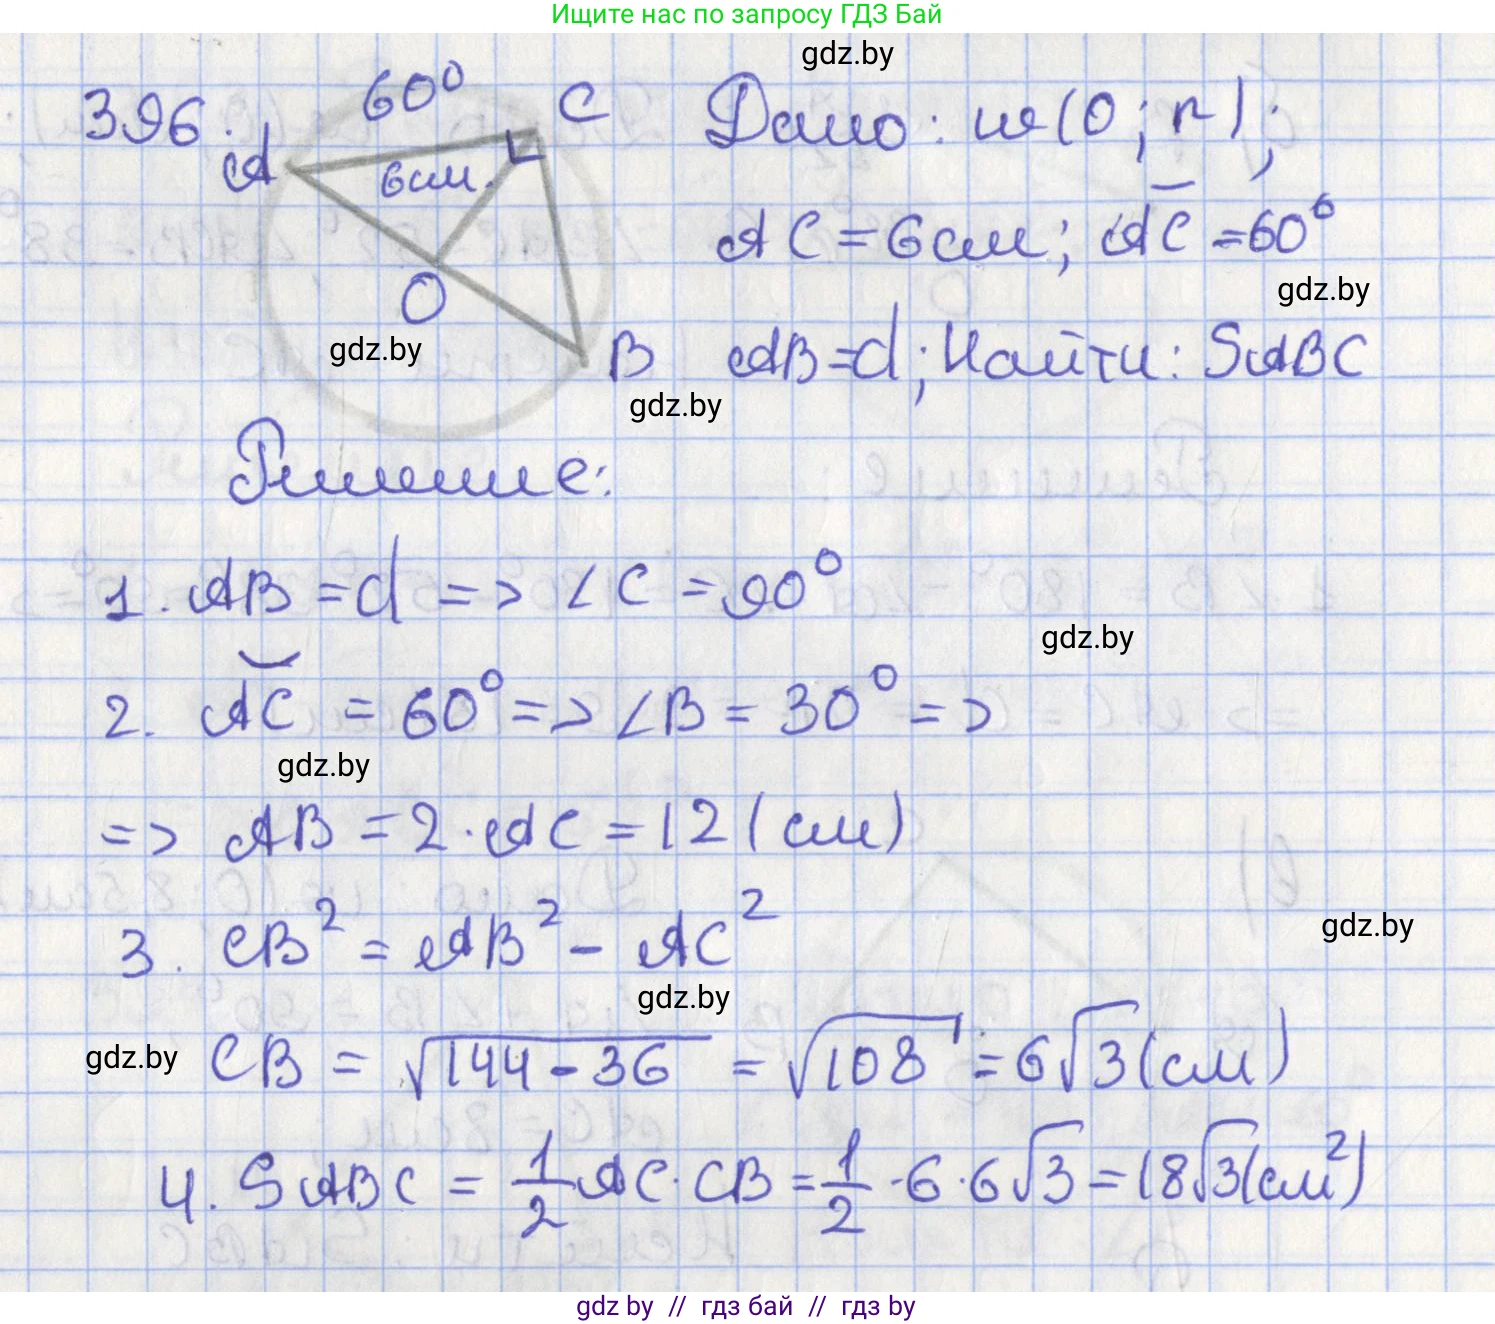 Ищите нас по запросу ГДЗ Бай
gdz.by
396.
60⁰
A
C
6см.
O
B
Дано: w(O; r);
AC = 6см; AC = 60⁰
gdz.by
AB = d; Найти: SABC
gdz.by
gdz.by
Решение:
1. AB = d => ∠C = 90⁰
gdz.by
2. AC = 60⁰ => ∠B = 30⁰ =>
gdz.by
=> AB = 2 · AC = 12 (см)
gdz.by
3. CB² = AB² - AC²
gdz.by
gdz.by
CB = √144 - 36 = √108 = 6√3 (см)
4. SABC = 1/2 AC · CB = 1/2 · 6 · 6√3 = 18√3 (см²)
gdz by // гдз бай // гдз by